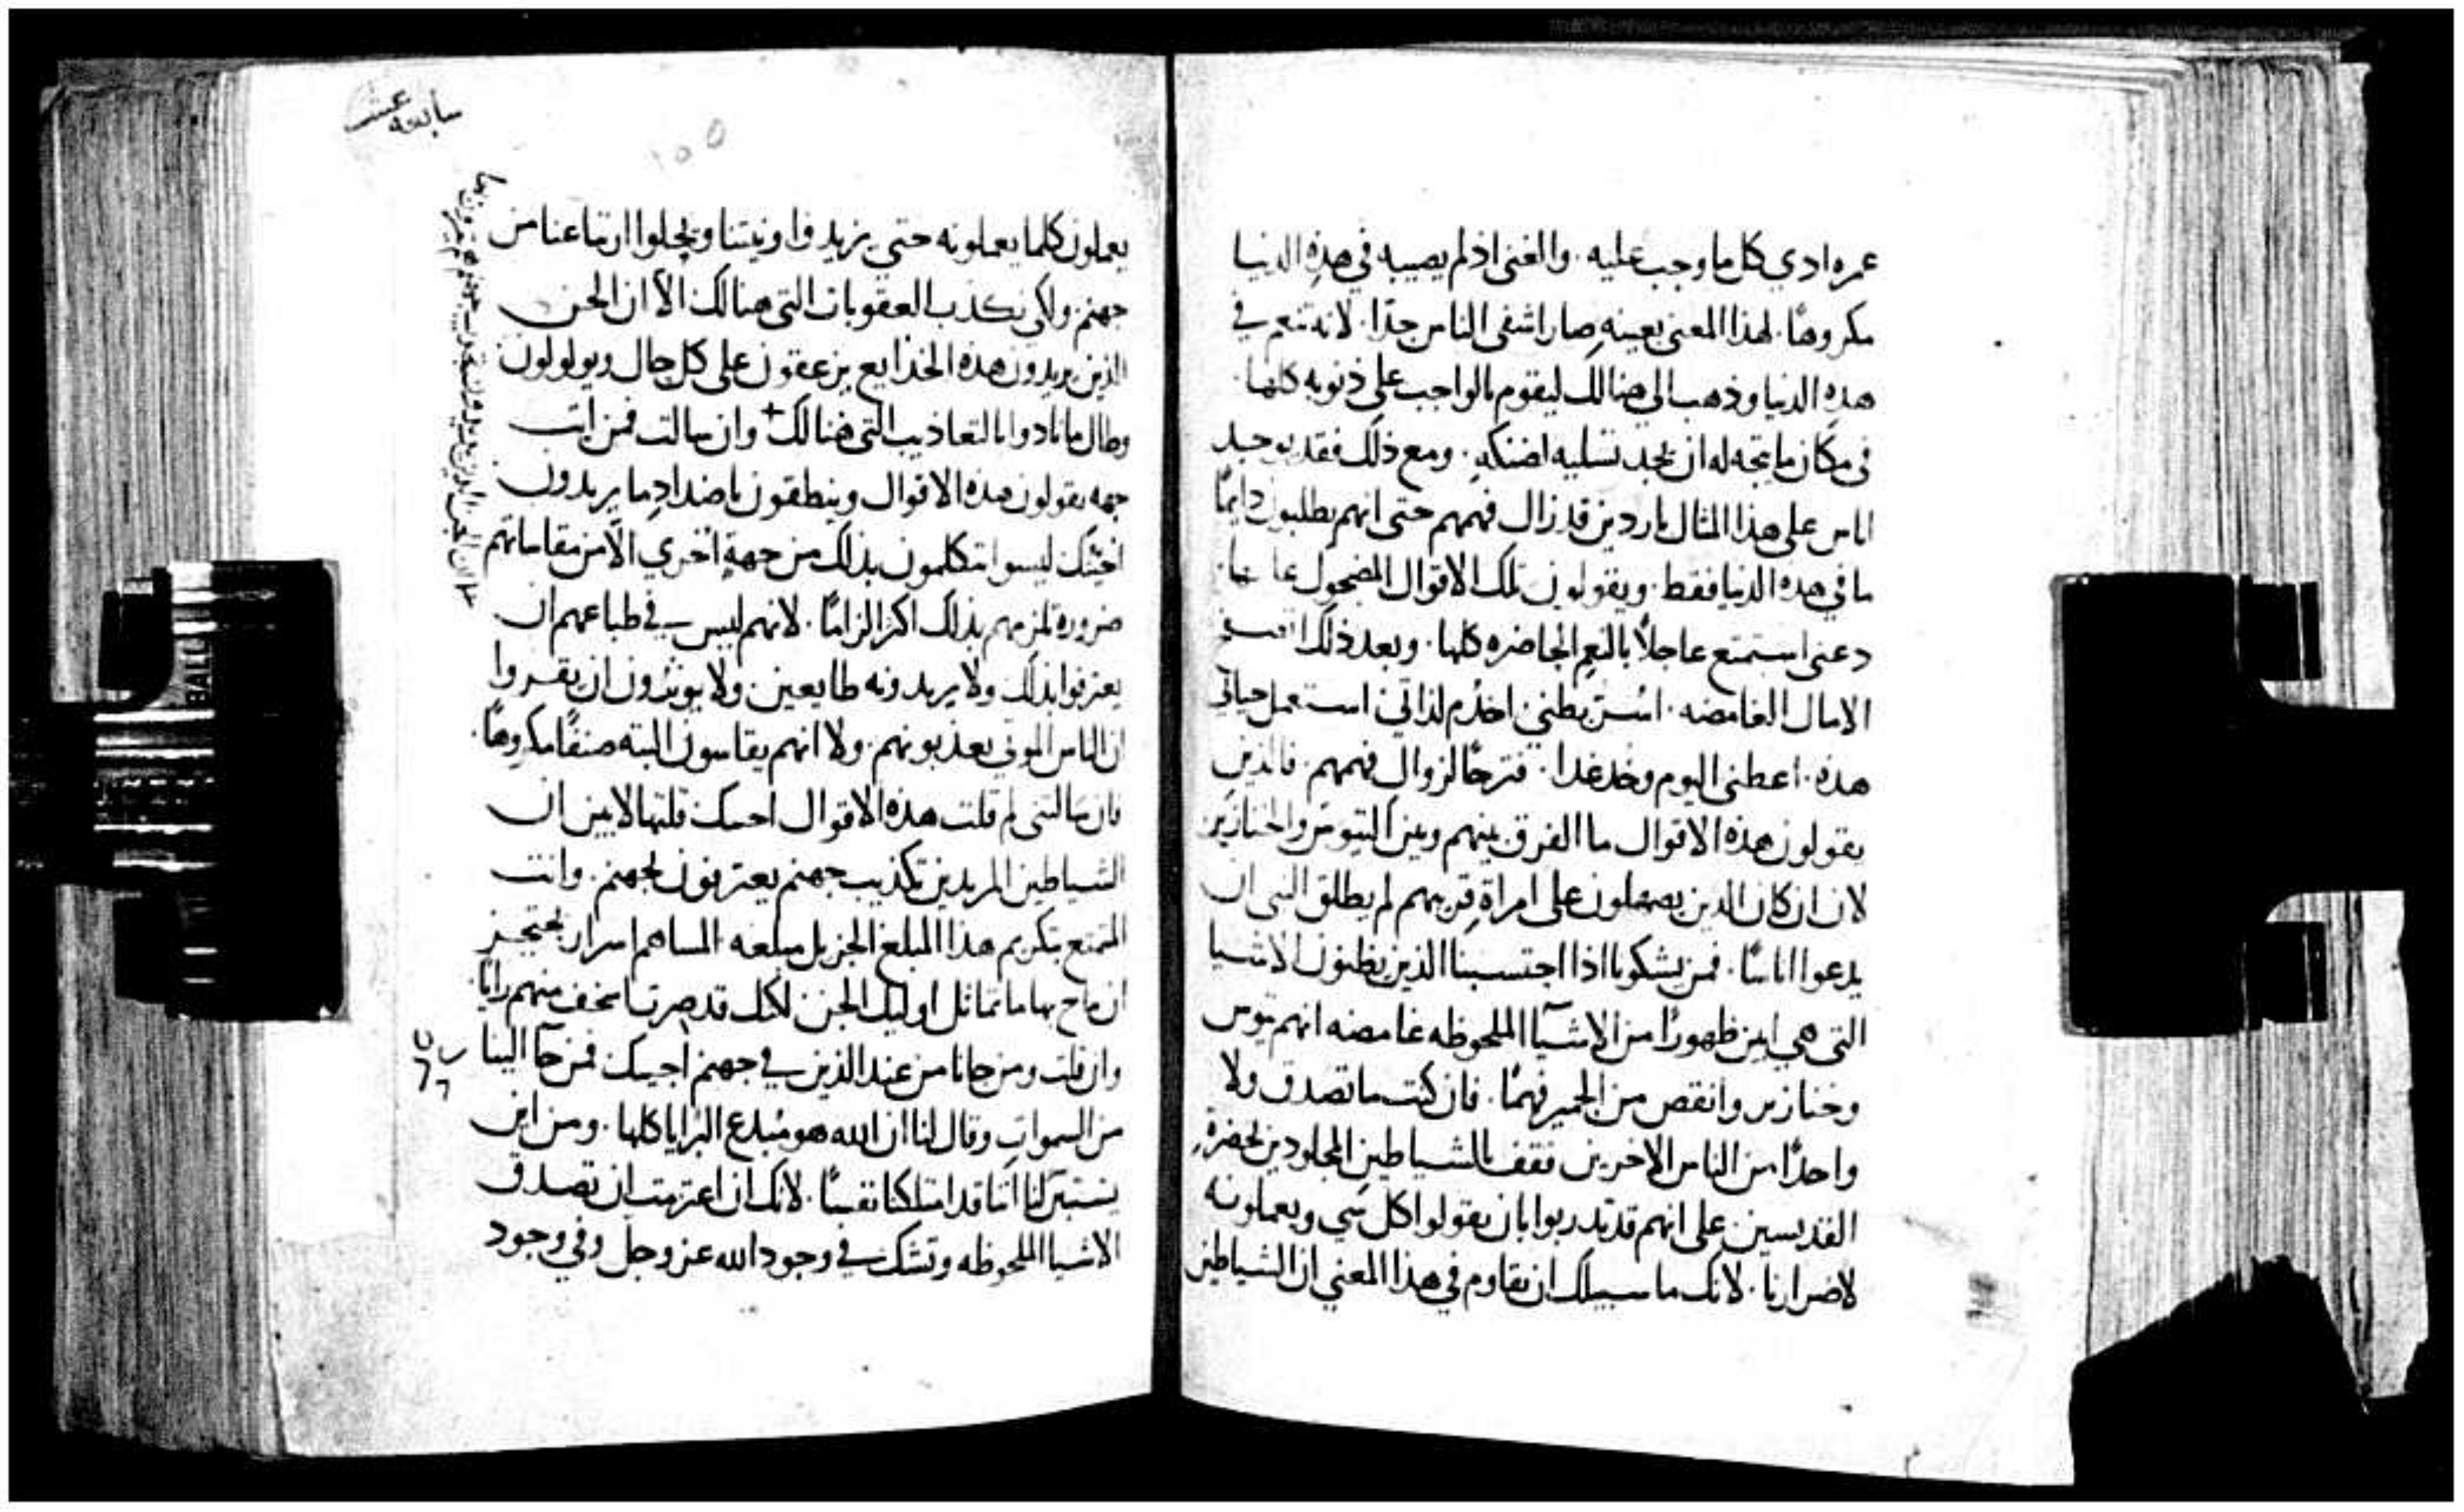 عمره ادي كل ما وجب عليه. والغني اذ لم يصيبه في هذه الدنيا
مكروهًا. لهذا المعني بعينه صار اشقي الناس جدًا. لانه تنعم في
هذه الدنيا وذهب الي هنالك ليقوم بالواجب علي ذنوبه كلها.
في مكان ما يتجه له ان يجد تسليه لضنكه. ومع ذلك فقد يوجد
اناس علي هذا المثال ماردين قد زال فهمهم حتي انهم يطلبون دايمًا
ما في هذه الدنيا فقط. ويقولون تلك الاقوال المضحوك
دعني استمتع عاجلاً بالنعم الحاضره كلها. وبعد ذلك
الامال الغامضه. اسُر بطني. اخدُم لذاتي. استعمل حياتي
هذه. اعطني اليوم وخد غدا. فترحًا لزوال فهمهم. فالذين
يقولون هذه الاقوال ما الفرق بينهم وبين التيوس والخنازير
لان ان كان الذين يصهلون علي امراة قريبهم لم يطلق النبي ان
يدعوا اناسًا. فمن يشكونا اذا احتسبنا الذين يظنون الاشيا
التي هي ابين ظهورًا من الاشيآ الملحوظه غامضه انهم تيوس
وخنازير وانقص من الحمير فهمًا. فان كنت ما تصدق ولا
واحدًا من الناس الاخرين فقف بالشياطين المجلودين بحضرة
القديسين علي انهم قد تدربوا بان يقولوا كل شي ويعملونه
لاضرارنا. لانك ما سبيلك ان تقاوم في هذا المعني ان الشياطين
سابعه عشر
١٥٥
يعملون كلما يعملونه حتي يزيدوا ونيتنا ويحلوا ارتياعنا من
جهنم. ولكي نكذب العقوبات التي هنالك الا ان الجن
الذين يريدون هذه الخدايع يزعقون علي كل حال ويولولون
وطال ما نادوا بالتعاذيب التي هنالك+ وان سالت فمن ايت
جهه يقولون هذه الاقوال وينطقون باضداد ما يريدون
اجبتك ليسوا يتكلمون بذلك من جهةٍ اخري الا من مقاساتهم
ضروره تلزمهم بذلك اكثر الزامًا. لانهم ليس في طباعهم ان
يعترفوا بذلك ولا يريدونه طايعين ولا يوثرون ان يقروا
ان الناس الموتي يعذبونهم. ولا انهم يقاسون البته صنفًا مكروهًا.
فان سالتني لم قلت هذه الاقوال اجبتك قلتها لابين ان
الشياطين المريدين تكذيب جهنم يعترفون بجهنم. وانت
المتمتع بتكريم هذا المبلغ الجزيل مبلغه المساهم اسرار
ان ما تماثل اوليك الجن لكنك قد صرت اسخف منهم رايًا.
وان قلت ومن جانا من عند الذين في جهنم اجيبك فمن جآ الينا
من السموات وقال لنا ان الله هو مُبدع البرايا كلها. ومن اين
يستبين لنا اننا قد امتلكنا نفسًا. لانك ان اعتزمت ان تصدق
الاشيا الملحوظه وتشك في وجود الله عز وجل وفي وجود